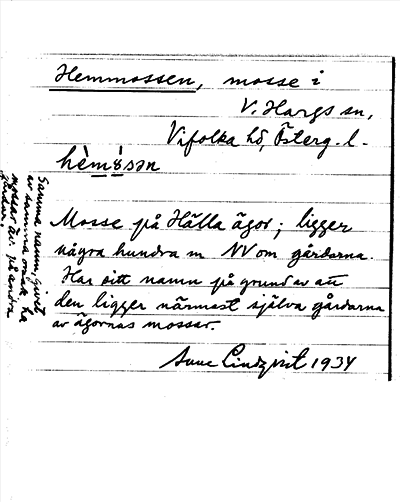 Hemmossen, mosse i
V. Hargs sn,
Vifolka hd, Österg. l.
hèm&sən
Mosse på Hälla ägor; ligger
några hundra m NV om gårdarna.
Har sitt namn på grund av att
den ligger närmast själva gårdarna
av ägornas mossar.
Sune Lindqvist 1934
Samma namn, givet
av samma orsak ha
mossar äv. på andra
gårdar.